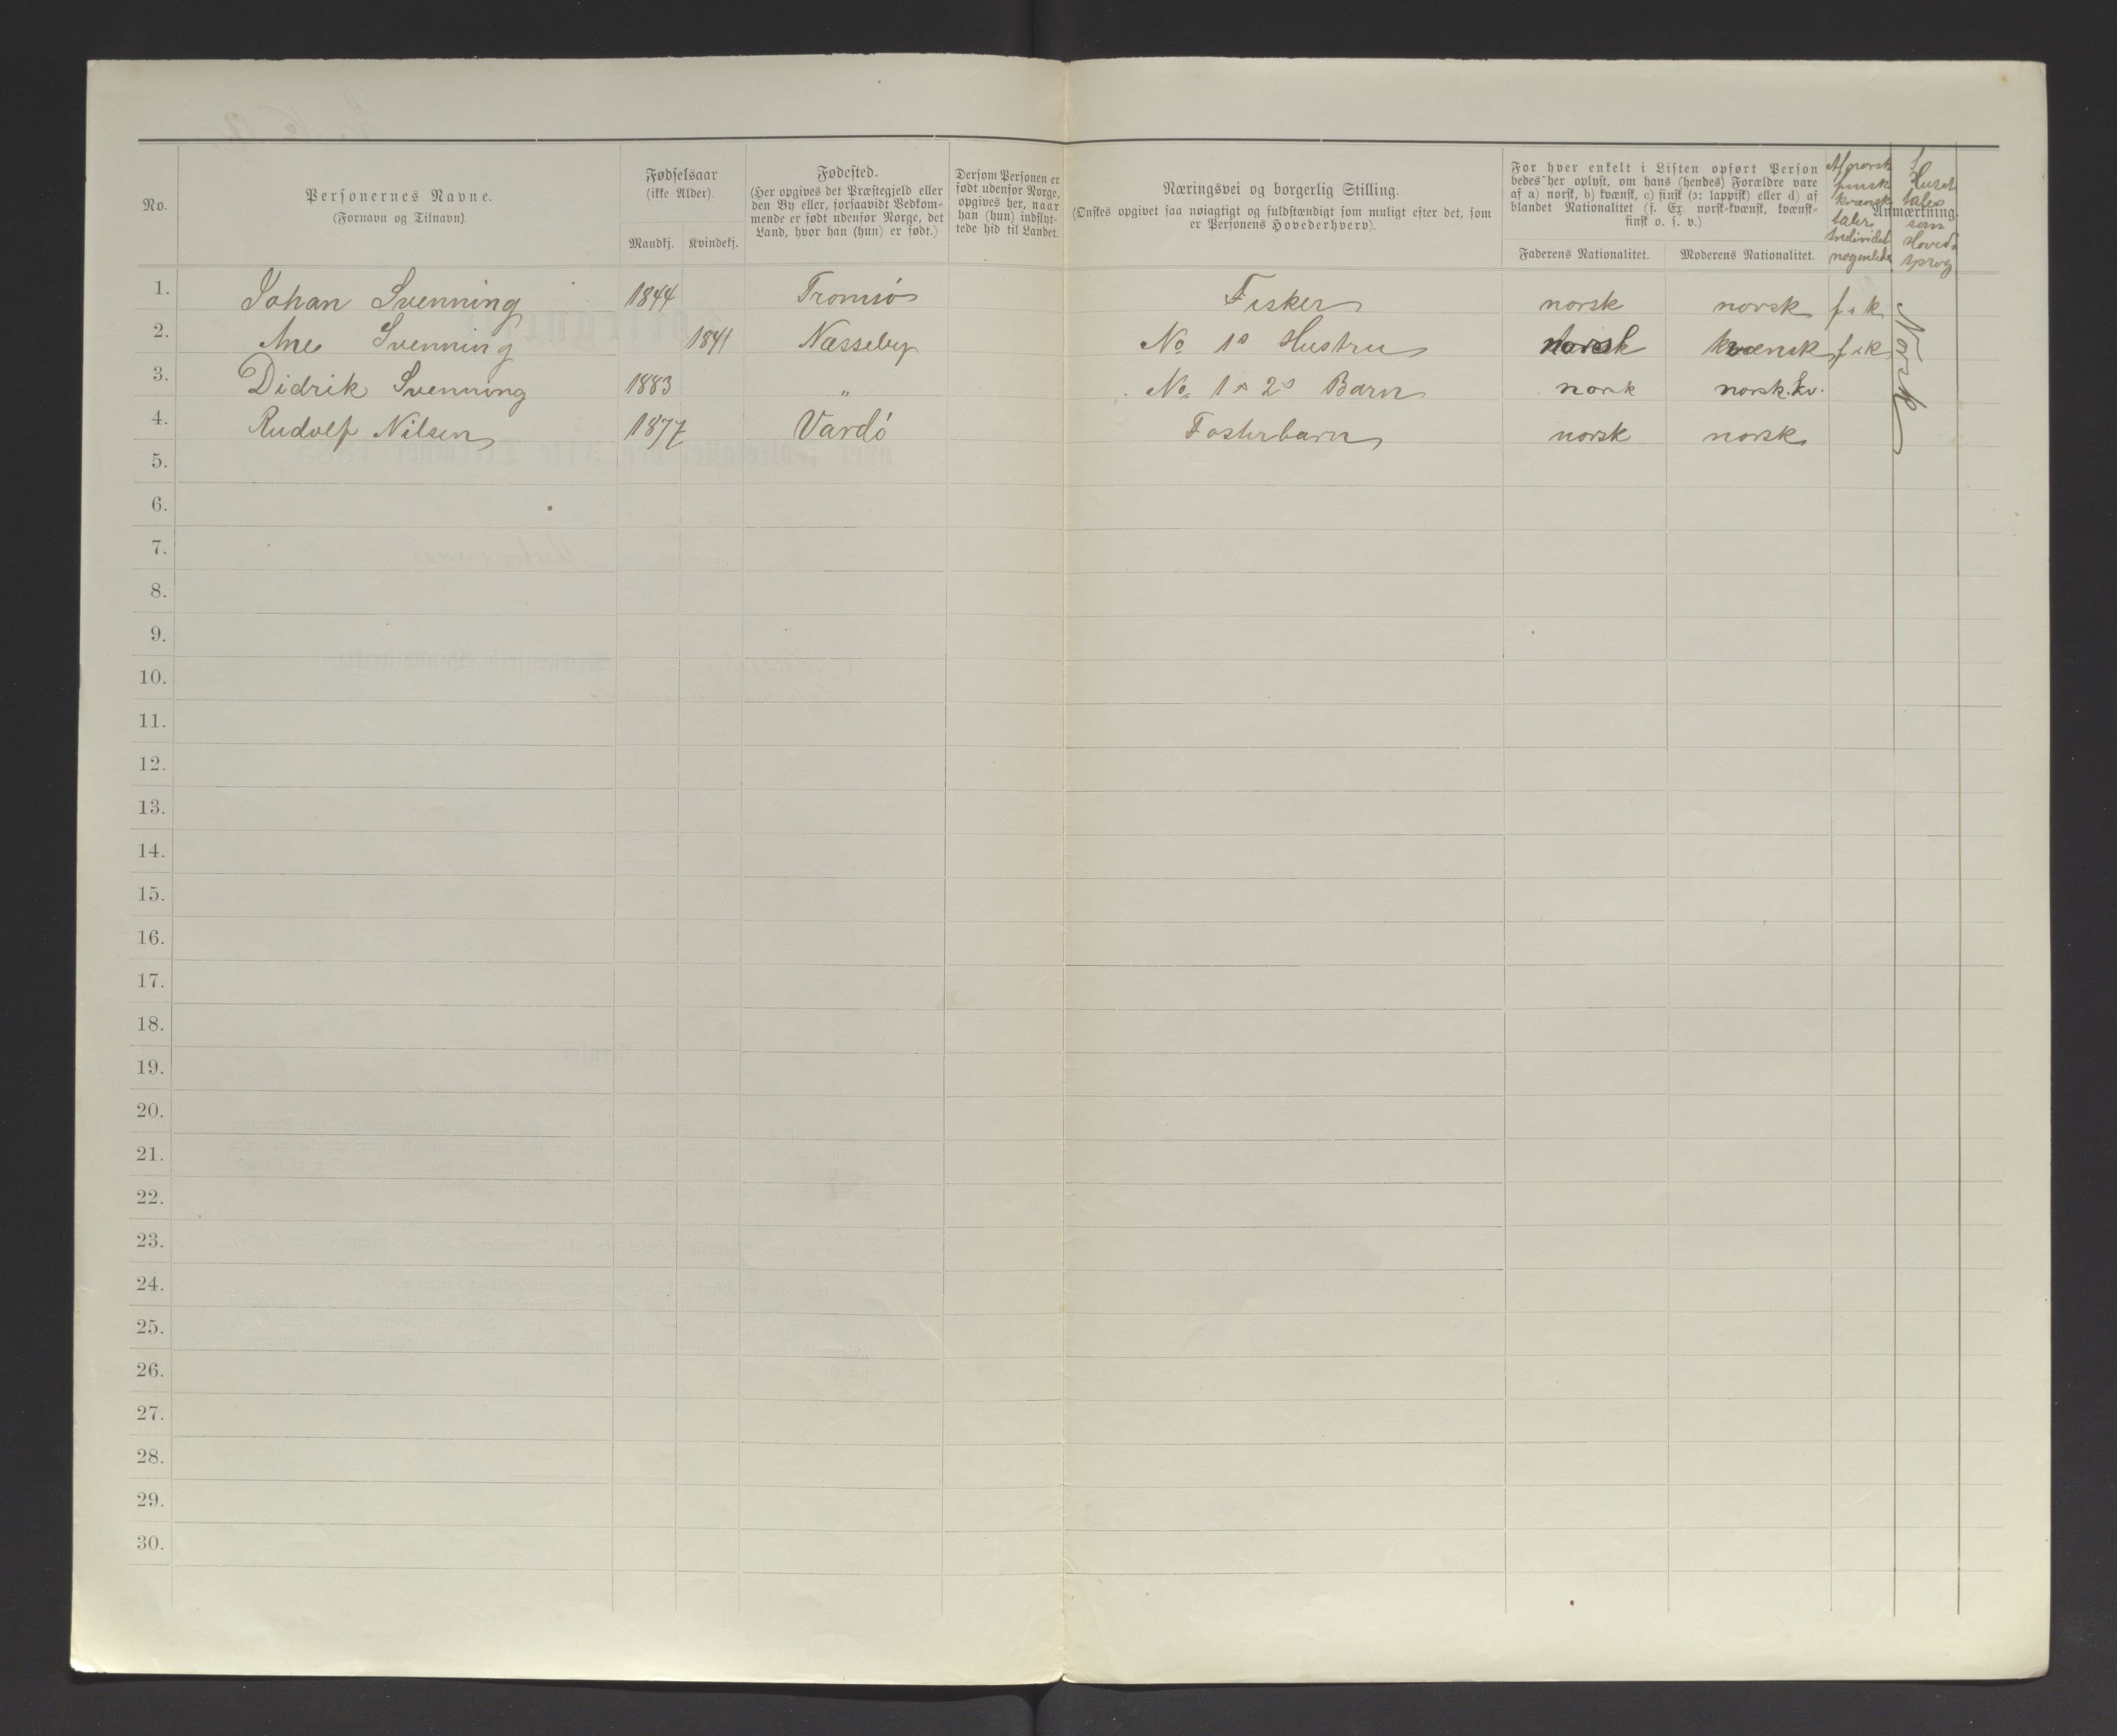 No.
Personernes Navne.
(Fornavn og Tilnavn).
Fødselsaar
(ikke Alder).
Mandkj. Kvindekj.
Fødested.
(Her opgives det Præstegjeld eller
den By eller, forsaavidt Vedkom-
mende er født udenfor Norge, det
Land, hvor han (hun) er født.)
Dersom Personen er
født udenfor Norge,
opgives her, naar
han (hun) indflyt-
tede hid til Landet.
Næringsvei og borgerlig Stilling.
(Ønskes opgivet saa nøiagtigt og fuldstændigt som muligt efter det, som
er Personens Hovederhverv).
For hver enkelt i Listen opført Person
bedes her oplyst, om hans (hendes) Forældre vare
af a) norsk, b) kvænsk, c) finsk (ɔ: lappisk) eller d) af
blandet Nationalitet (f. Ex. norsk-kvænsk, kvænsk-
finsk o. s. v.)
Faderens Nationalitet. Moderens Nationalitet.
Anmærkning.
Af norsk
finsk
kvænsk
taler
Individet
nogenlede
I
Huset
tales
som
Hoved
sprog
1. Johan Svenning 1844 Tromsö Fisker norsk norsk f. k
2. Ane Svenning 1841 Næsseby No 1s Hustru norsk kvænsk f. k
3. Didrik Svenning 1883 " No 1s 2s Barn norsk norsk. kv.
4. Rudolf Nilsen 1877 Vardö Fosterbarn norsk norsk
Norsk
5.
6.
7.
8.
9.
10.
11.
12.
13.
14.
15.
16.
17.
18.
19.
20.
21.
22.
23.
24.
25.
26.
27.
28.
29.
30.